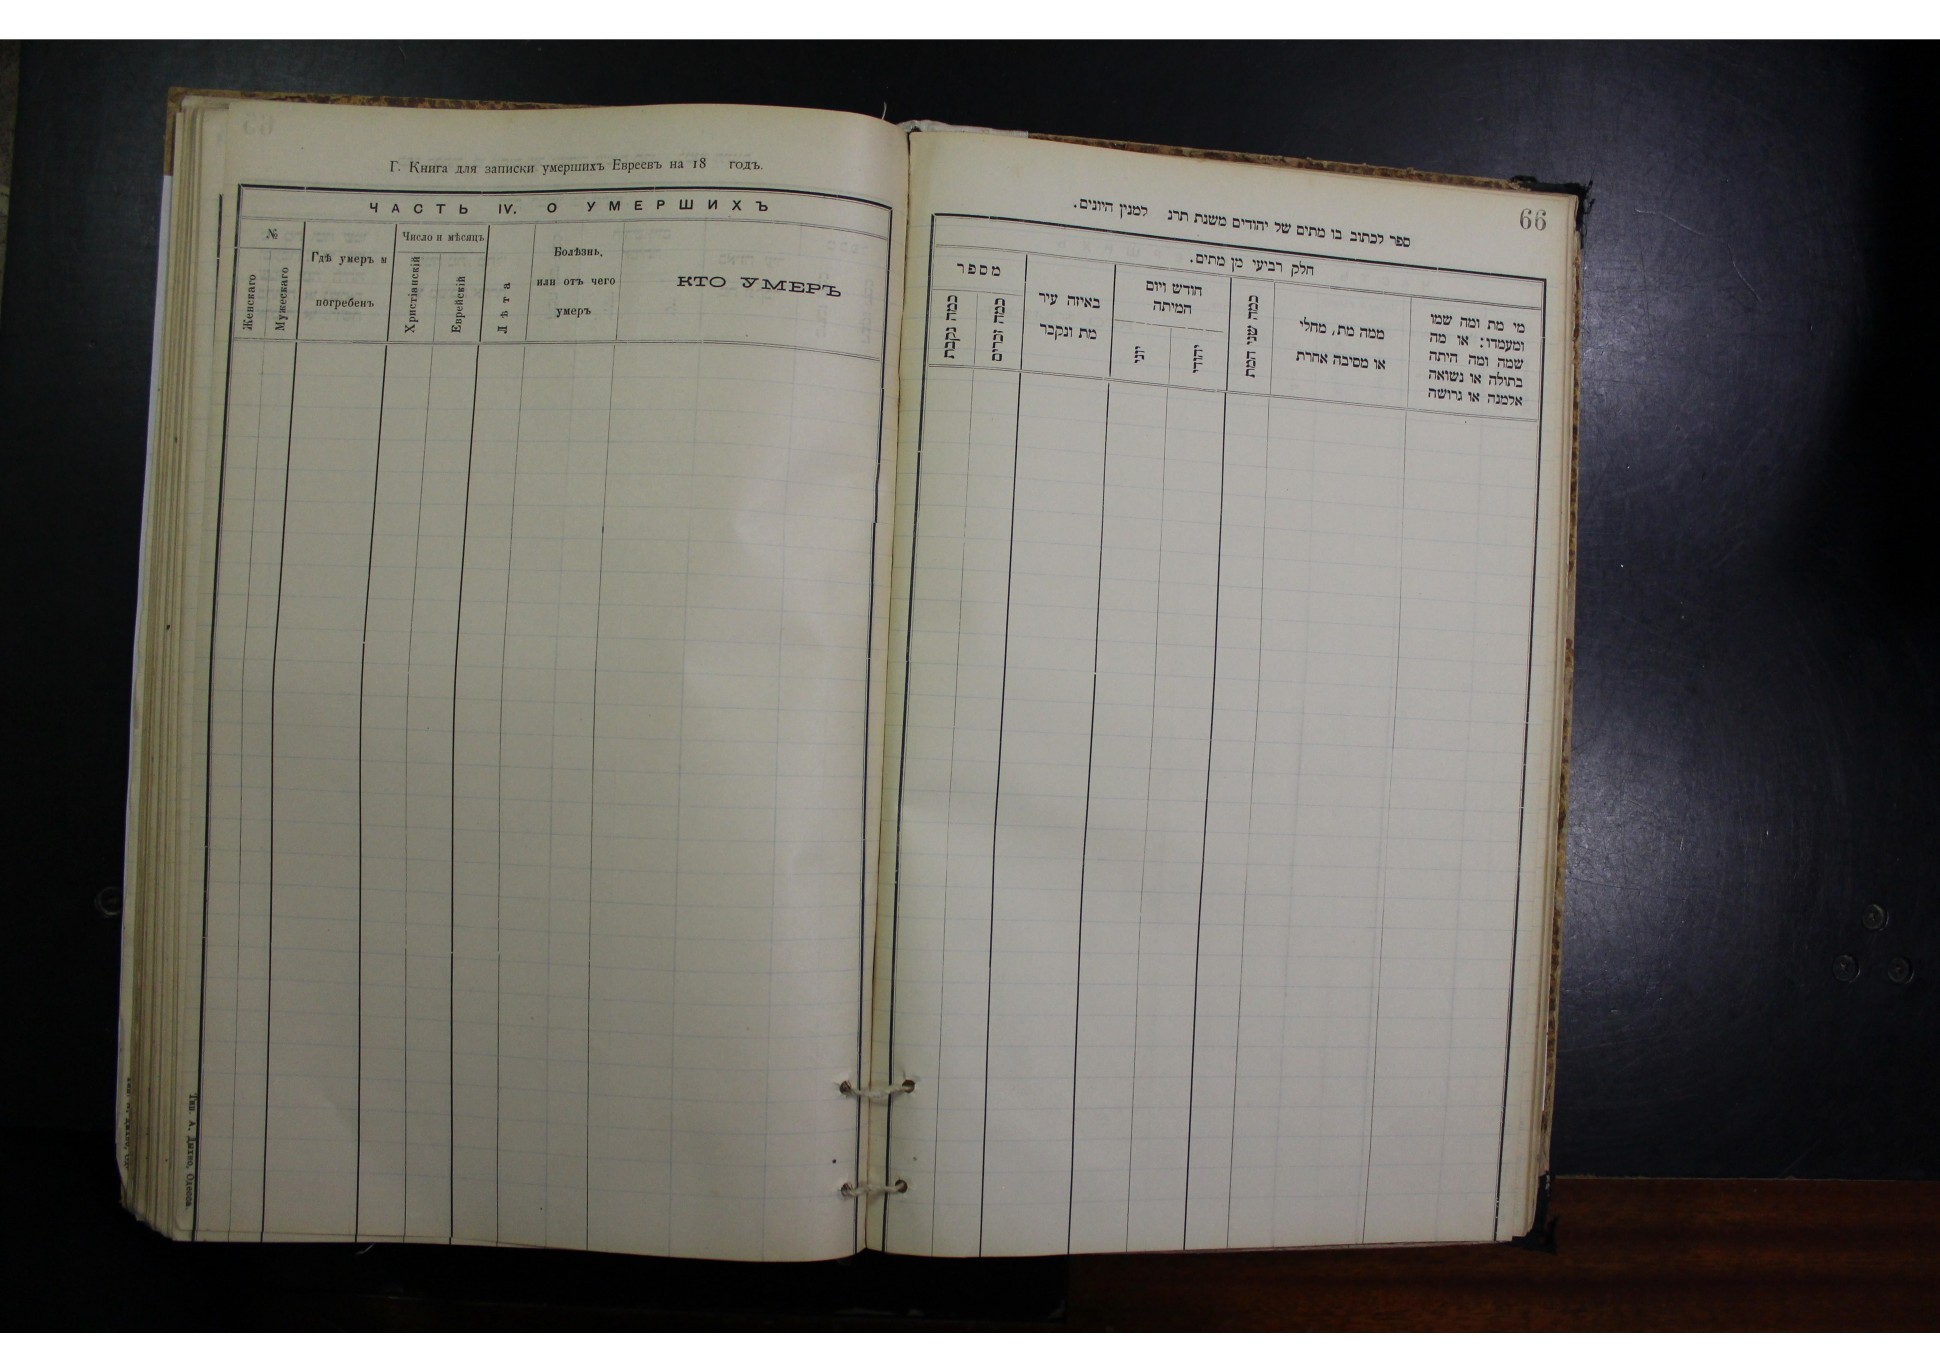 Г. Книга для записки умершихъ Евреевъ на 18 годъ.
ЧАСТЬ IV. О УМЕРШИХЪ
№
Женскаго
Мужескаго
Гдѣ умеръ и
погребенъ
Число и мѣсяцъ
Христіанскій
Еврейскій
Лѣта
Болѣзнь,
или отъ чего
умеръ
КТО УМЕРЪ
Тип. А. Дыхно, Одесса.
66
ספר לכתוב בו מתים של יהודים משנת תרנ למנין היונים.
חלק רביעי מן מתים.
מספר
כמה נקבת
כמה זכרים
באיזה עיר
מת ונקבר
חודש ויום
המיתה
יוני
יהודי
כמה שני המת
ממה מת, מחלי
או מסיבה אחרת
מי מת ומה שמו
ומעמדו: או מה
שמה ומה היתה
בתולה או נשואה
אלמנה או גרושה